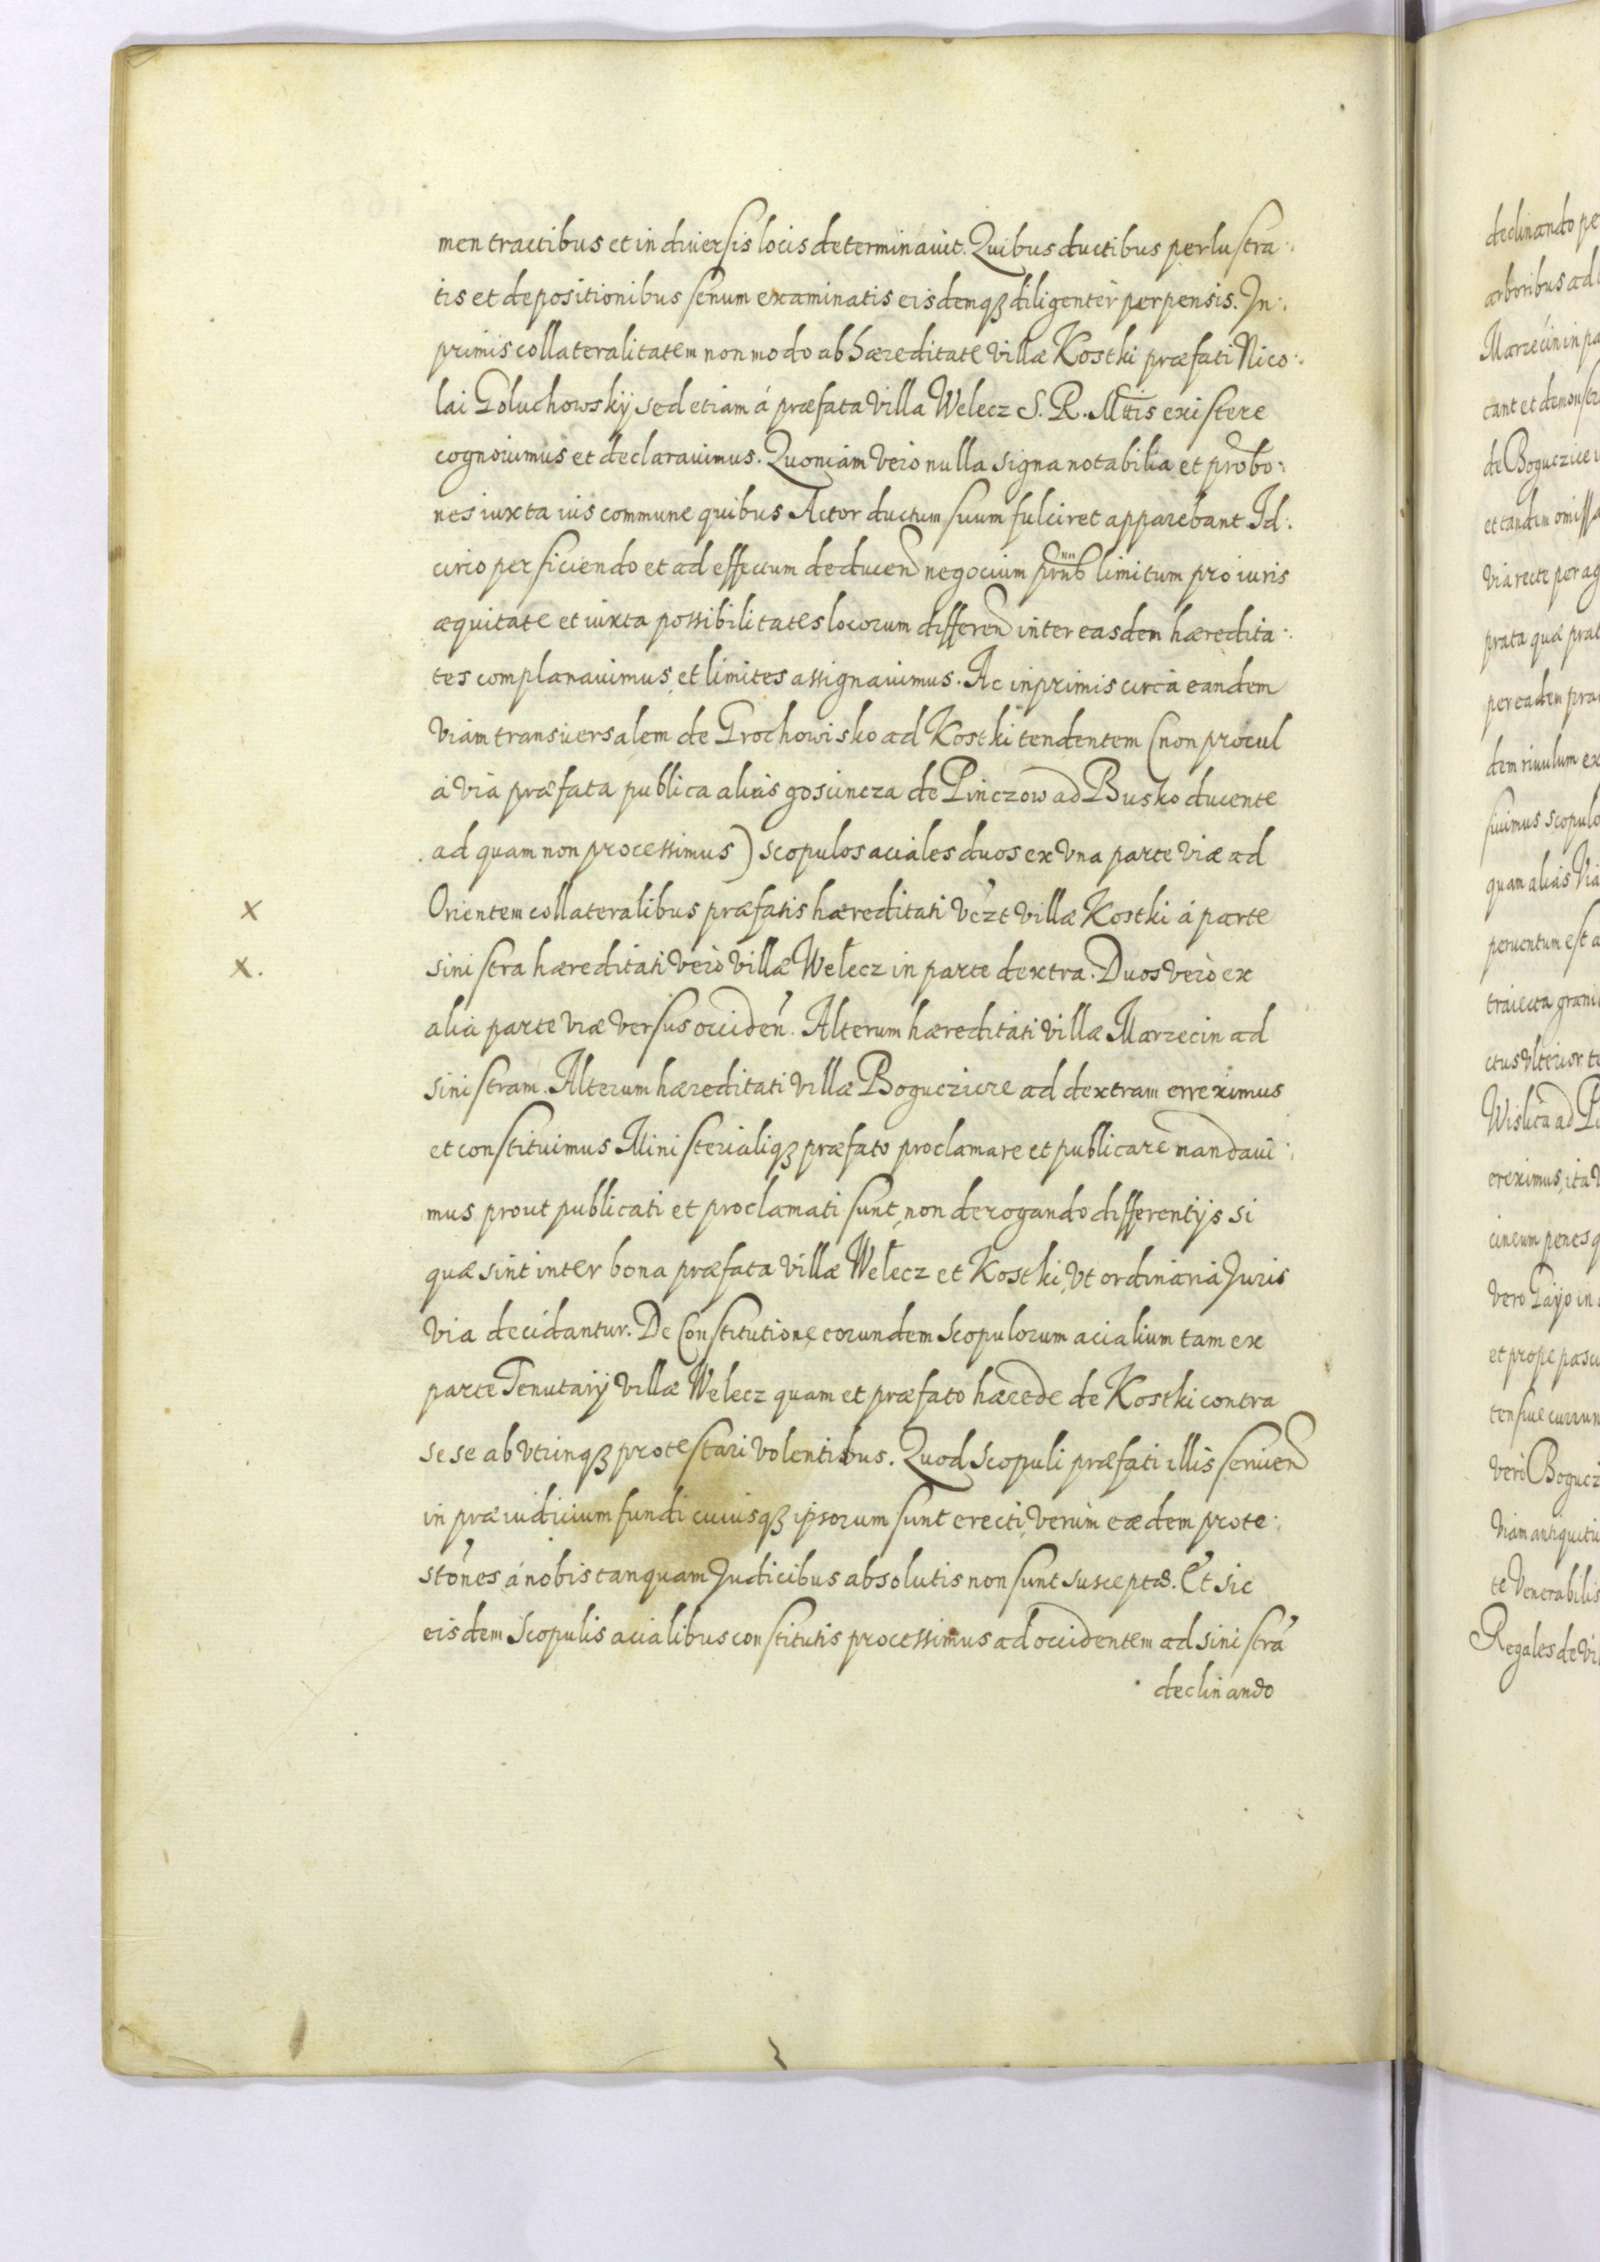 men tractibus et in diuersis locis determinauit. Quibus ductibus perlustra-
tis et depositionibus senum examinatis eisdemq3 diligenter perpensis. In-
primis collateralitatem non modo ab hæreditate villæ Kostki præfati Nico-
lai Goluchowskÿ sed etiam á præfata villa Welecz S. R. Mttis existere
cognouimus et declarauimus. Quoniam vero nulla signa notabilia et probõ-
nes iuxta ius commune quibus Actor ductum suum fulciret apparebant Id-
circo perficiendo et ad effectum deducen negocium limitum pro iuris
æquitate et iuxta possibilitates locorum differen inter easdem hæredita-
tes complanauimus, et limites assignauimus. Ac inprimis circa eandem
viam transuersalem de Grochowisko ad Kostki tendentem (non procul
á via præfata publica alias goscincza de Pinczow ad Busko ducente
ad quam non processimus) scopulos aciales duos ex vna parte viæ ad
x Orientem collateralibus præfatis hæreditati vczt villæ Kostki á parte
x. sinistra hæreditati verò villæ Welecz in parte dextra. Duos verò ex
alia parte viæ versus occiden. Alterum hæreditati villæ Marzecin ad
sinistram. Alterum hæreditati villæ Bogucziice ad dextram erreximus
et constituimus Ministerialiq3 præfato proclamare et publicare mandaui-
mus prout publicati et proclamati sunt, non derogando differentÿs si
quæ sint inter bona præfata villæ Welecz et Kostki, vt ordinaria Juris
via decidantur. De Constitutione eorundem scopulorum acialium tam ex
parte Tenutarÿ villæ Welecz quam et præfato hærede de Kostki contra
se se ab vtrinq3 protestari volentibus. Quod scopuli præfati illis seruien
in præiudicium fundi cuiusq3 ipsorum sunt erecti, verùm eædem prote-
stones á nobis tanquam Judicibus absolutis non sunt susceptæ. Et sic
eisdem scopulis acialibus constitutis processimus ad occidentem ad sinistrã
declinando
declinando pe
arboribus ad
Marzecin in pa
cant et demonstr
de Boguczice
et tandem omissa
via recte per ag
prata quæ prat
per eadem pra
dem riuulum ex
suimus scopulo
quam alias via
peruentum est a
traiecta grani
ctus vlterior te
Wislicã ad Pi
ereximus, ita
cineum penes q
vero Gayo in
et prope pascu
ten siue currun
verò Bogucz
viam antiquitu
te Venerabilis
Regales de vil